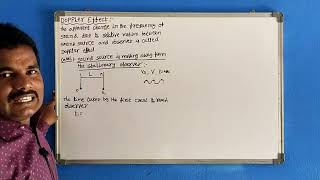 DOPPLER Effect :-
The apparent change in the frequency of
sound due to relative motion between
source and observer is called
Doppler effect
Case:1 Sound source is moving away from
the stationary observer :-
L
The time taken by the first crest to reach
observer
t1 =